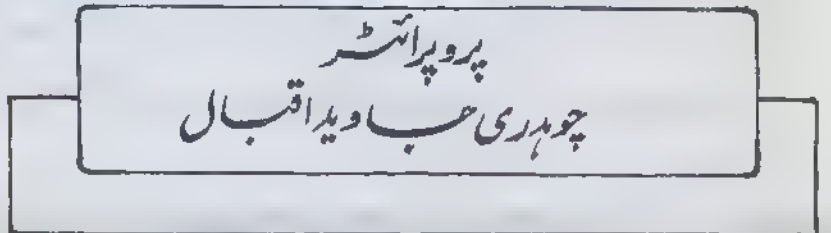 پروپرائٹر
چوہدری جاوید اقبال